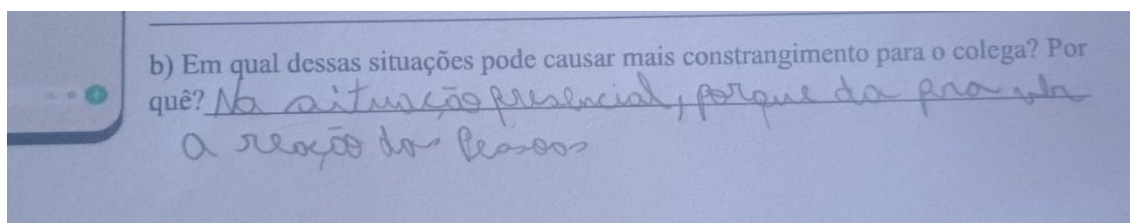 b) Em qual dessas situações pode causar mais constrangimento para o colega? Por
quê? Na situação presencial, porque da pra ver
a reação das pessoas